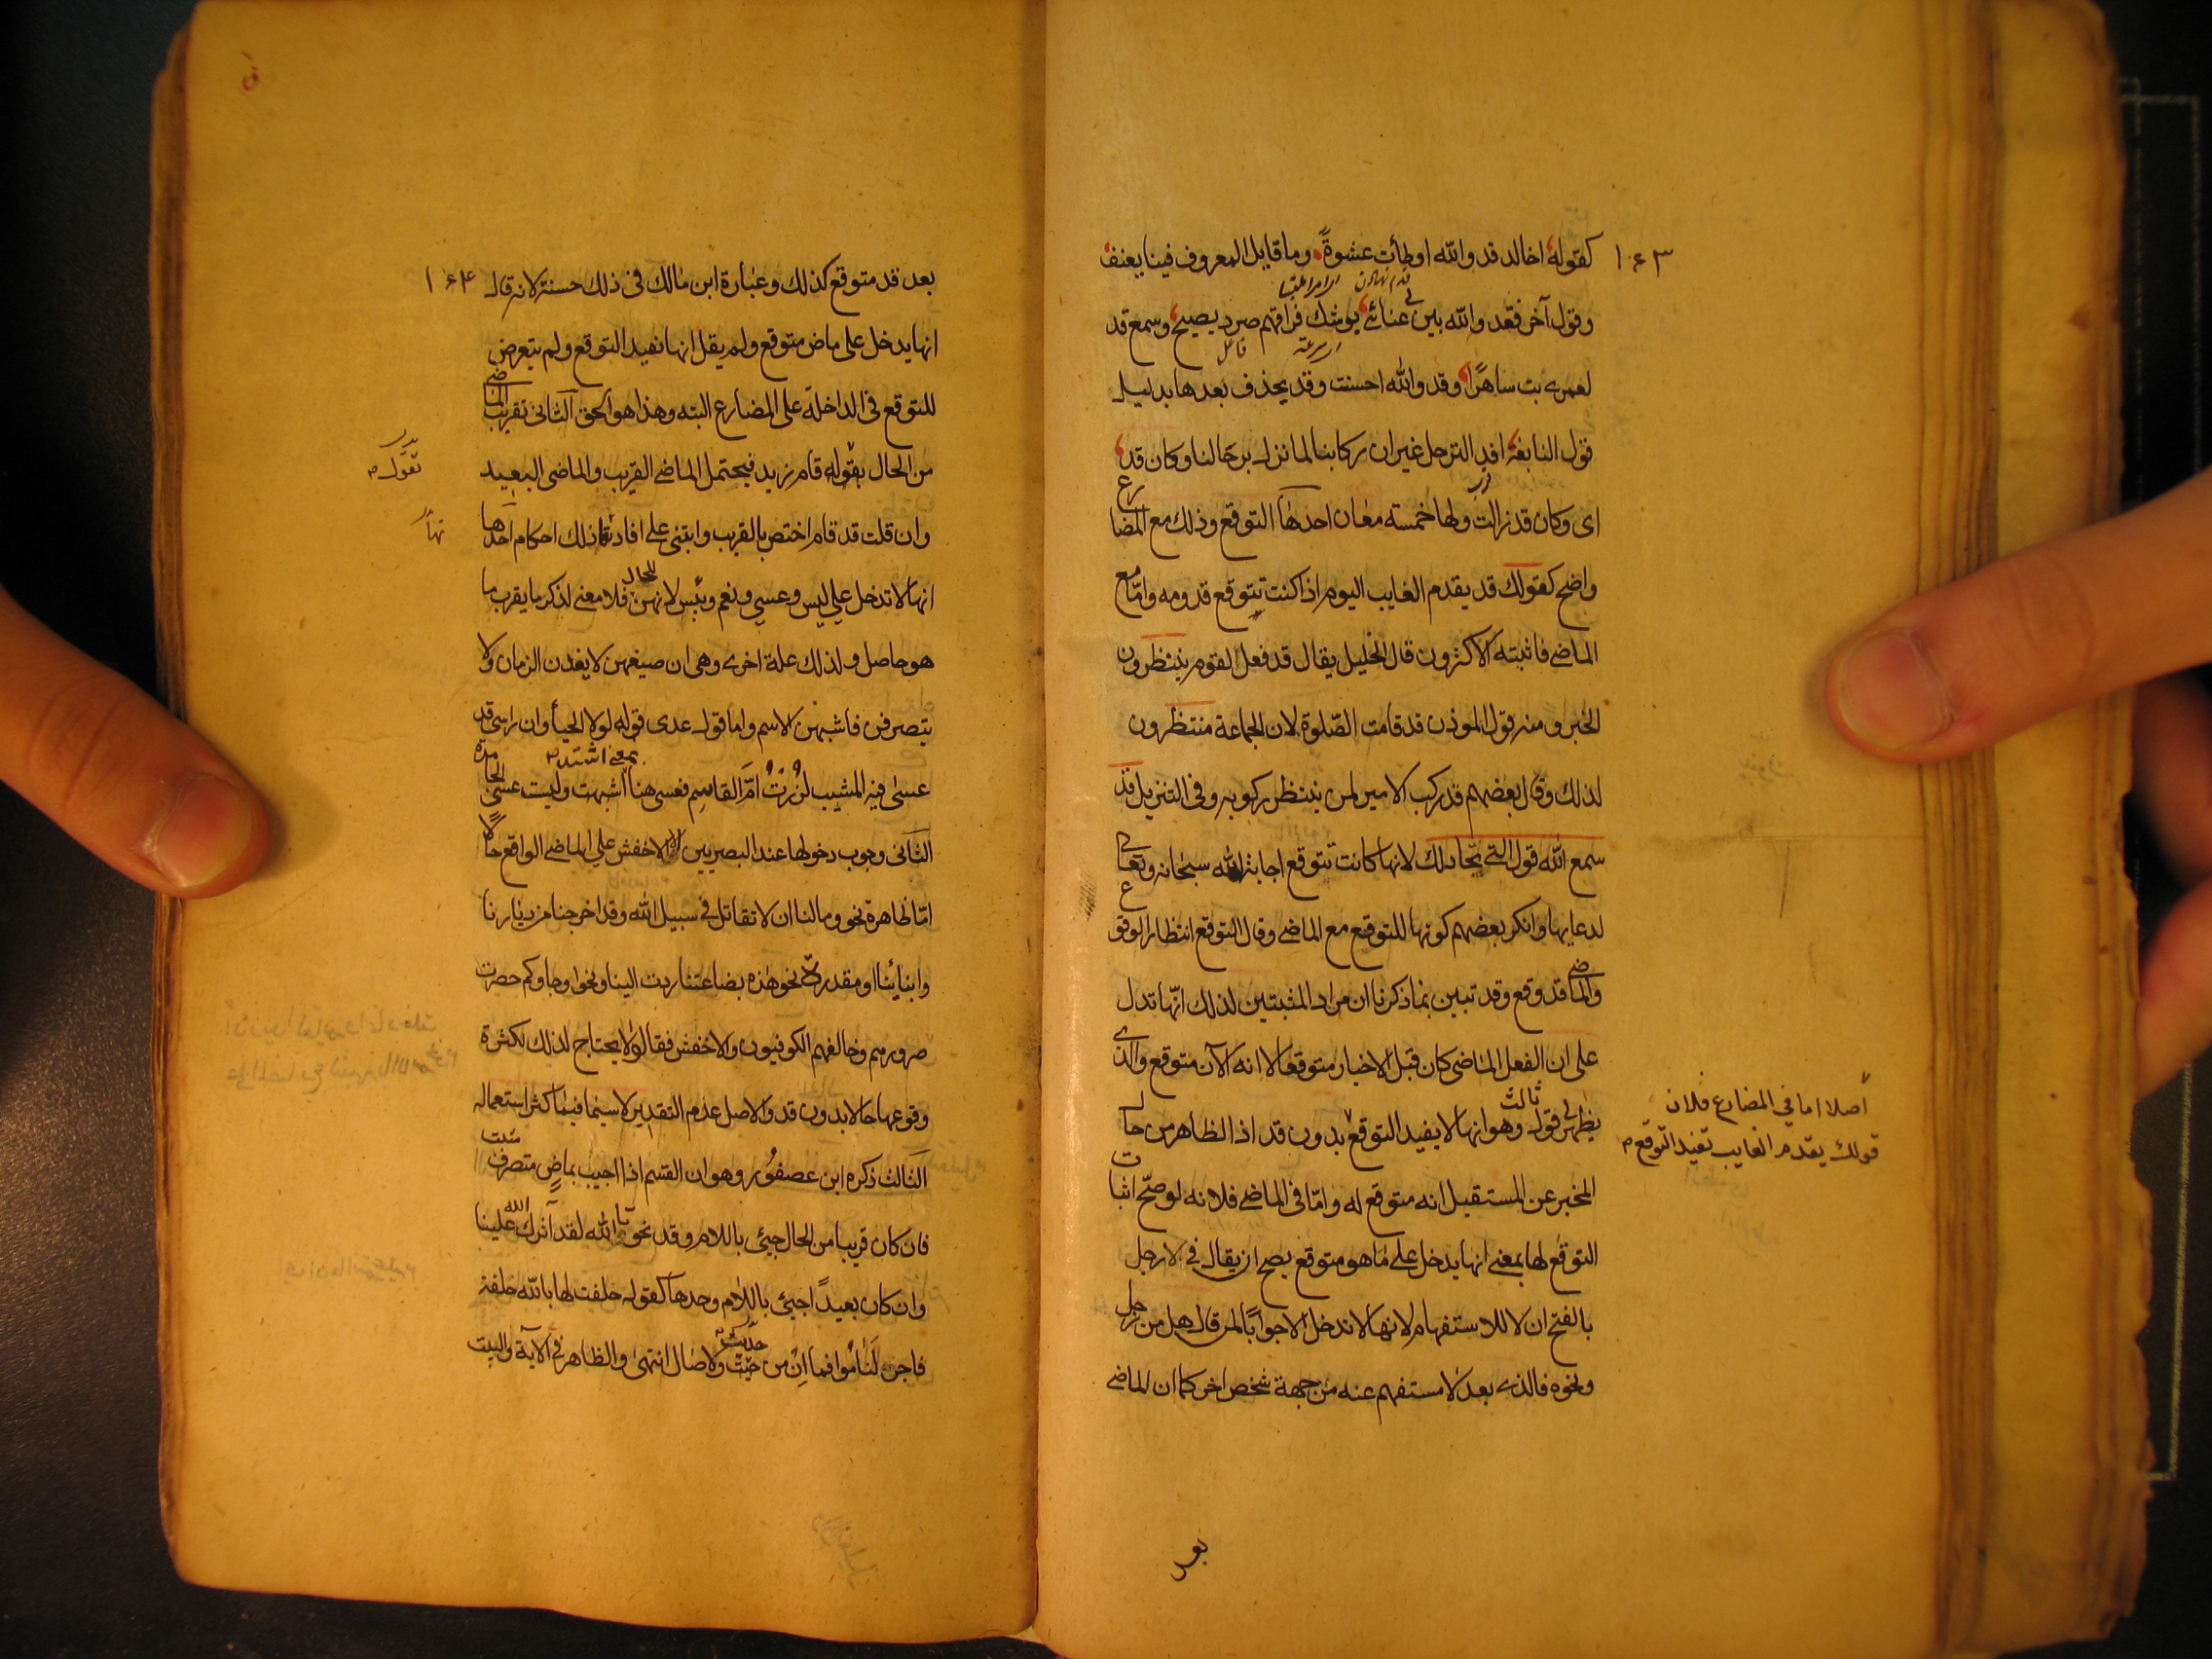 ١٦٣
كقوله اخالد قد والله اوطأت عشوةً وما قايل المعروف فينا يعنف
وقول آخر فقد والله بين لي عنائي بوشك فراقهم صرد يصيح وسمع قد
لعمري بت ساهرًا وقد والله احسنت وقد يحذف بعدها بدليل
قول النابغة افد الترحل غير ان ركابنا لما تزل برحالنا وكان قد
اى وكان قد زالت ولها خمسة معان احدها التوقع وذلك مع المضارع
واضح كقولك قد يقدم الغايب اليوم اذا كنت تتوقع قدومه وامّا مع
الماضي فاثبته الاكثرون قال الخليل يقال قد فعل لقوم ينتظرون
الخبر ومنه قول الموذن قد قامت الصّلوة لان الجماعة منتظرون
لذلك وقال بعضهم قد ركب الامير لمن ينتظر ركوبه وفي التنزيل قد
سمع الله قول التي تجادلك لانها كانت تتوقع اجابة الله سبحانه وتعالى
لدعايها وانكر بعضهم كونها للتوقع مع الماضي وقال التوقع انتظار الوقوع
والماضي قد وقع وقد تبين بما ذكرنا ان مراد المثبتين لذلك انّها تدل
على ان الفعل الماضى كان قبل الاخبار متوقعا لا انه الآن متوقع والذي
يظهر لي قول ثالث وهو انها لا يفيد التوقع بدون قد اذ الظاهر من حال
المخبر عن المستقبل انه متوقع له وامّا في الماضي فلانه لو صحّ اثبات
التوقع لها بمعنى انها يدخل على ما هو متوقع يصح ان يقال في لا رجل
بالفتح ان لا للاستفهام لانها لا تدخل الا جوابًا لمن قال هل من رجل
ونحوه فالذي بعد لا مستفهم عنه من جهة شخص اخر كما ان الماضي
اصلا اما في المضارع فلان
قولك يقدم الغايب تفيد التوقع م
بعد
١٦٤
بعد قد متوقع كذلك وعبارة ابن مالك فى ذلك حسنة لانه قال
انها يدخل على ماض متوقع ولم يقل انها تفيد التوقع ولم يتعرض
للتوقع في الداخلة على المضارع البته وهذا هو الحق الثانى تقريب الماضي
من الحال بقوله قام زيد فيحتمل الماضي القريب والماضى البعيد
وان قلت قد قام اختص بالقريب وابتنى على افادتها ذلك احكام احدها
انها لا تدخل على ليس وعسى ونعم وبئس لانهن للحال فلا معنى لذكر ما يقرب ما
هو حاصل ولذلك علة اخرى وهى ان صيغهن لا يفدن الزمان ولا
يتصرفن فاشبهن الاسم واما قول عدى قوله لولا الحيأ وان راسى قد
عسى فيه المشيب لزُرْتُ امَّ القاسِم فعسى هنا بمعنى اشتد م اشبهت وليست عسى الجامدة
الثانى وجوب دخولها عند البصريين الا الاخفش على الماضي الواقع حالًا
امّا ظاهرة نحو وما لنا ان لا تقاتل في سبيل الله وقد اخرجنا من ديارنا
وابنائنا او مقدرة نحو هذه بضاعتنا ردت الينا ونحوا وجاوكم حصرت
صرورهم وخالفهم الكوفيون والاخفش فقالوا لا يحتاج لذلك لكثرة
وقوعها حالا بدون قد والاصل عدم التقدير لا سيما فيما كثر استعماله
الثالث ذكره ابن عصفُور وهو ان القسم اذا اجيب بماضٍ متصرف مثبت
فان كان قريبا من الحال جيئ باللام وقد نحو تا الله لقد آثرك الله علينا
وان كان بعيدًا جيئ باللام وحدها كقوله حلفت لها بالله حلفة
فاجرٍ لَنَامُوا فما اِنْ من حديث ولا صال انتهى والظاهر في الآية والبيت
تقول م